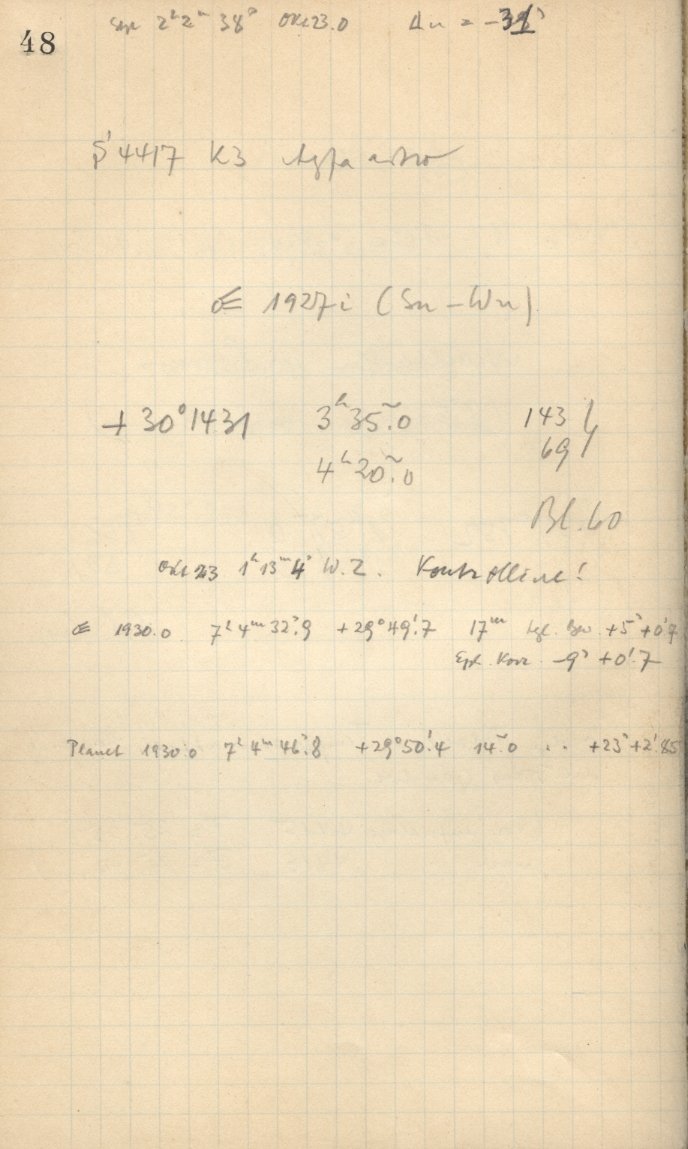 48
2ʰ 2ᵐ 38ˢ Okt 23.0 Δu =
4417 K3 Agfa astro
☄ 1927 i (Sn – Wn)
+ 30° 1431 3ʰ 35ᵐ.0 143
4ʰ 20ᵐ.0 69
Bl. 60
Okt 23 1ʰ 13ᵐ 4ˢ W.Z. Kontrolline!
☄ 1930.0 7ʰ 4ᵐ 32ˢ.9 +29° 49'.7 17ᵐ tgl. Bew. +5ˢ +0'.9
Eph. Korr. –9ˢ +0'.7
Planet 1930.0 7ʰ 4ᵐ 46ˢ.8 +29° 50'.4 14ᵐ.0 .. +23ˢ +2'.85